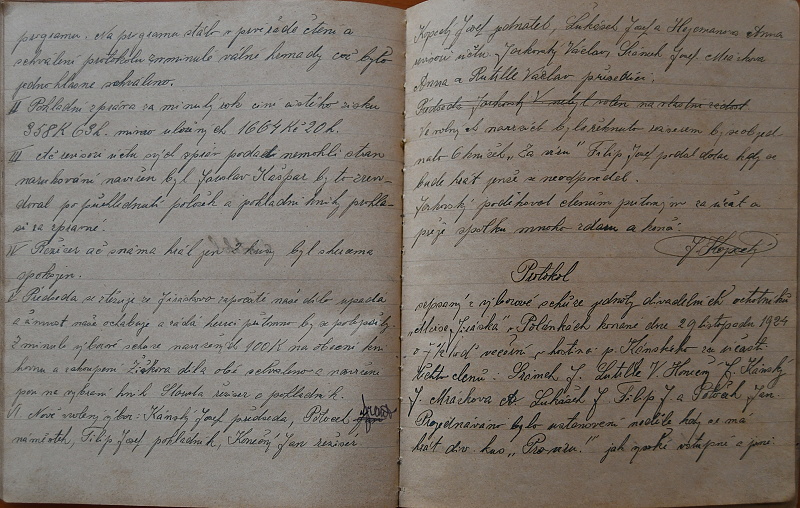 programu. Na programu stálo v prvé řadě čtení a
schválení protokolu z minulé valné hromady což bylo
jednohlasně schváleno.
II Pokladní zpráva za minulý rok činí čistého zisku
358K 63h. mimo uložených 1664 Kč 20h.
III čtě revisoři účtů svých zpráv podati nemohli stran
narukování navržen byl Jaroslav Kašpar by to zrevi-
doval po přehlédnutí položek a pokladní knihy prohlá-
sí za správné.
IV Režisér ač snámа hrál jen 2 kusy byl sheama
spokojen.
V Předseda se ztezuje že Jiráskovo započaté naše dílo upadá
a činnost naše ochabuje a žádá herci přítomno by se polepšily.
Z minulé výborové schůze navržených 100K na obecní kni-
hovnu a zakoupení Žižkova díla obé schváleno a navrženi
jsou na vybrání knih Slovuta režisér a pokladník.
VI Nově zvolený výbor: Kánský Josef předseda, Potoček Jan
náměstek, Filip Josef pokladník, Konečný Jan režisér
Kopecký Josef jednatel, Lukášek Josef a Hejcmanova Anna
revisoři účtů, Jarkovský Václav, Šrámek Josef, Mráčkova
Anna a Rutille Václav přísedící.
Předseda Jarkovský V. nebyl volen na vlastní žádost
Ve volných návrzích bylo řeknuto režisérem by se objed-
nalo 6 knížek „Za vsu" Filip Josef podal dotaz kdy se
bude hrát jenže se neodpovědel.
Jarkovský poděkoval členům přítomným za účast a
přeje spolku mnoho zdaru a končí.
J. Kopecký
Protokol
sepsaný z výborové schůze jednoty divadelních ochotníků
„Alois Jiráska" v Polánkách konané dne 29 listopadu 1924
o 7½ hod večerní v hostinci p. Kánského za účasti
těchto členů: Šrámek J. Lutille V. Konečný J. Kánský
J. Mráčkova A. Lukášek J. Filip J. a Potoček Jan.
Projednáváno bylo ustanovení neděle kdy se má
hrát div. kus „Pro vsu." jak vysoké vstupné a při-